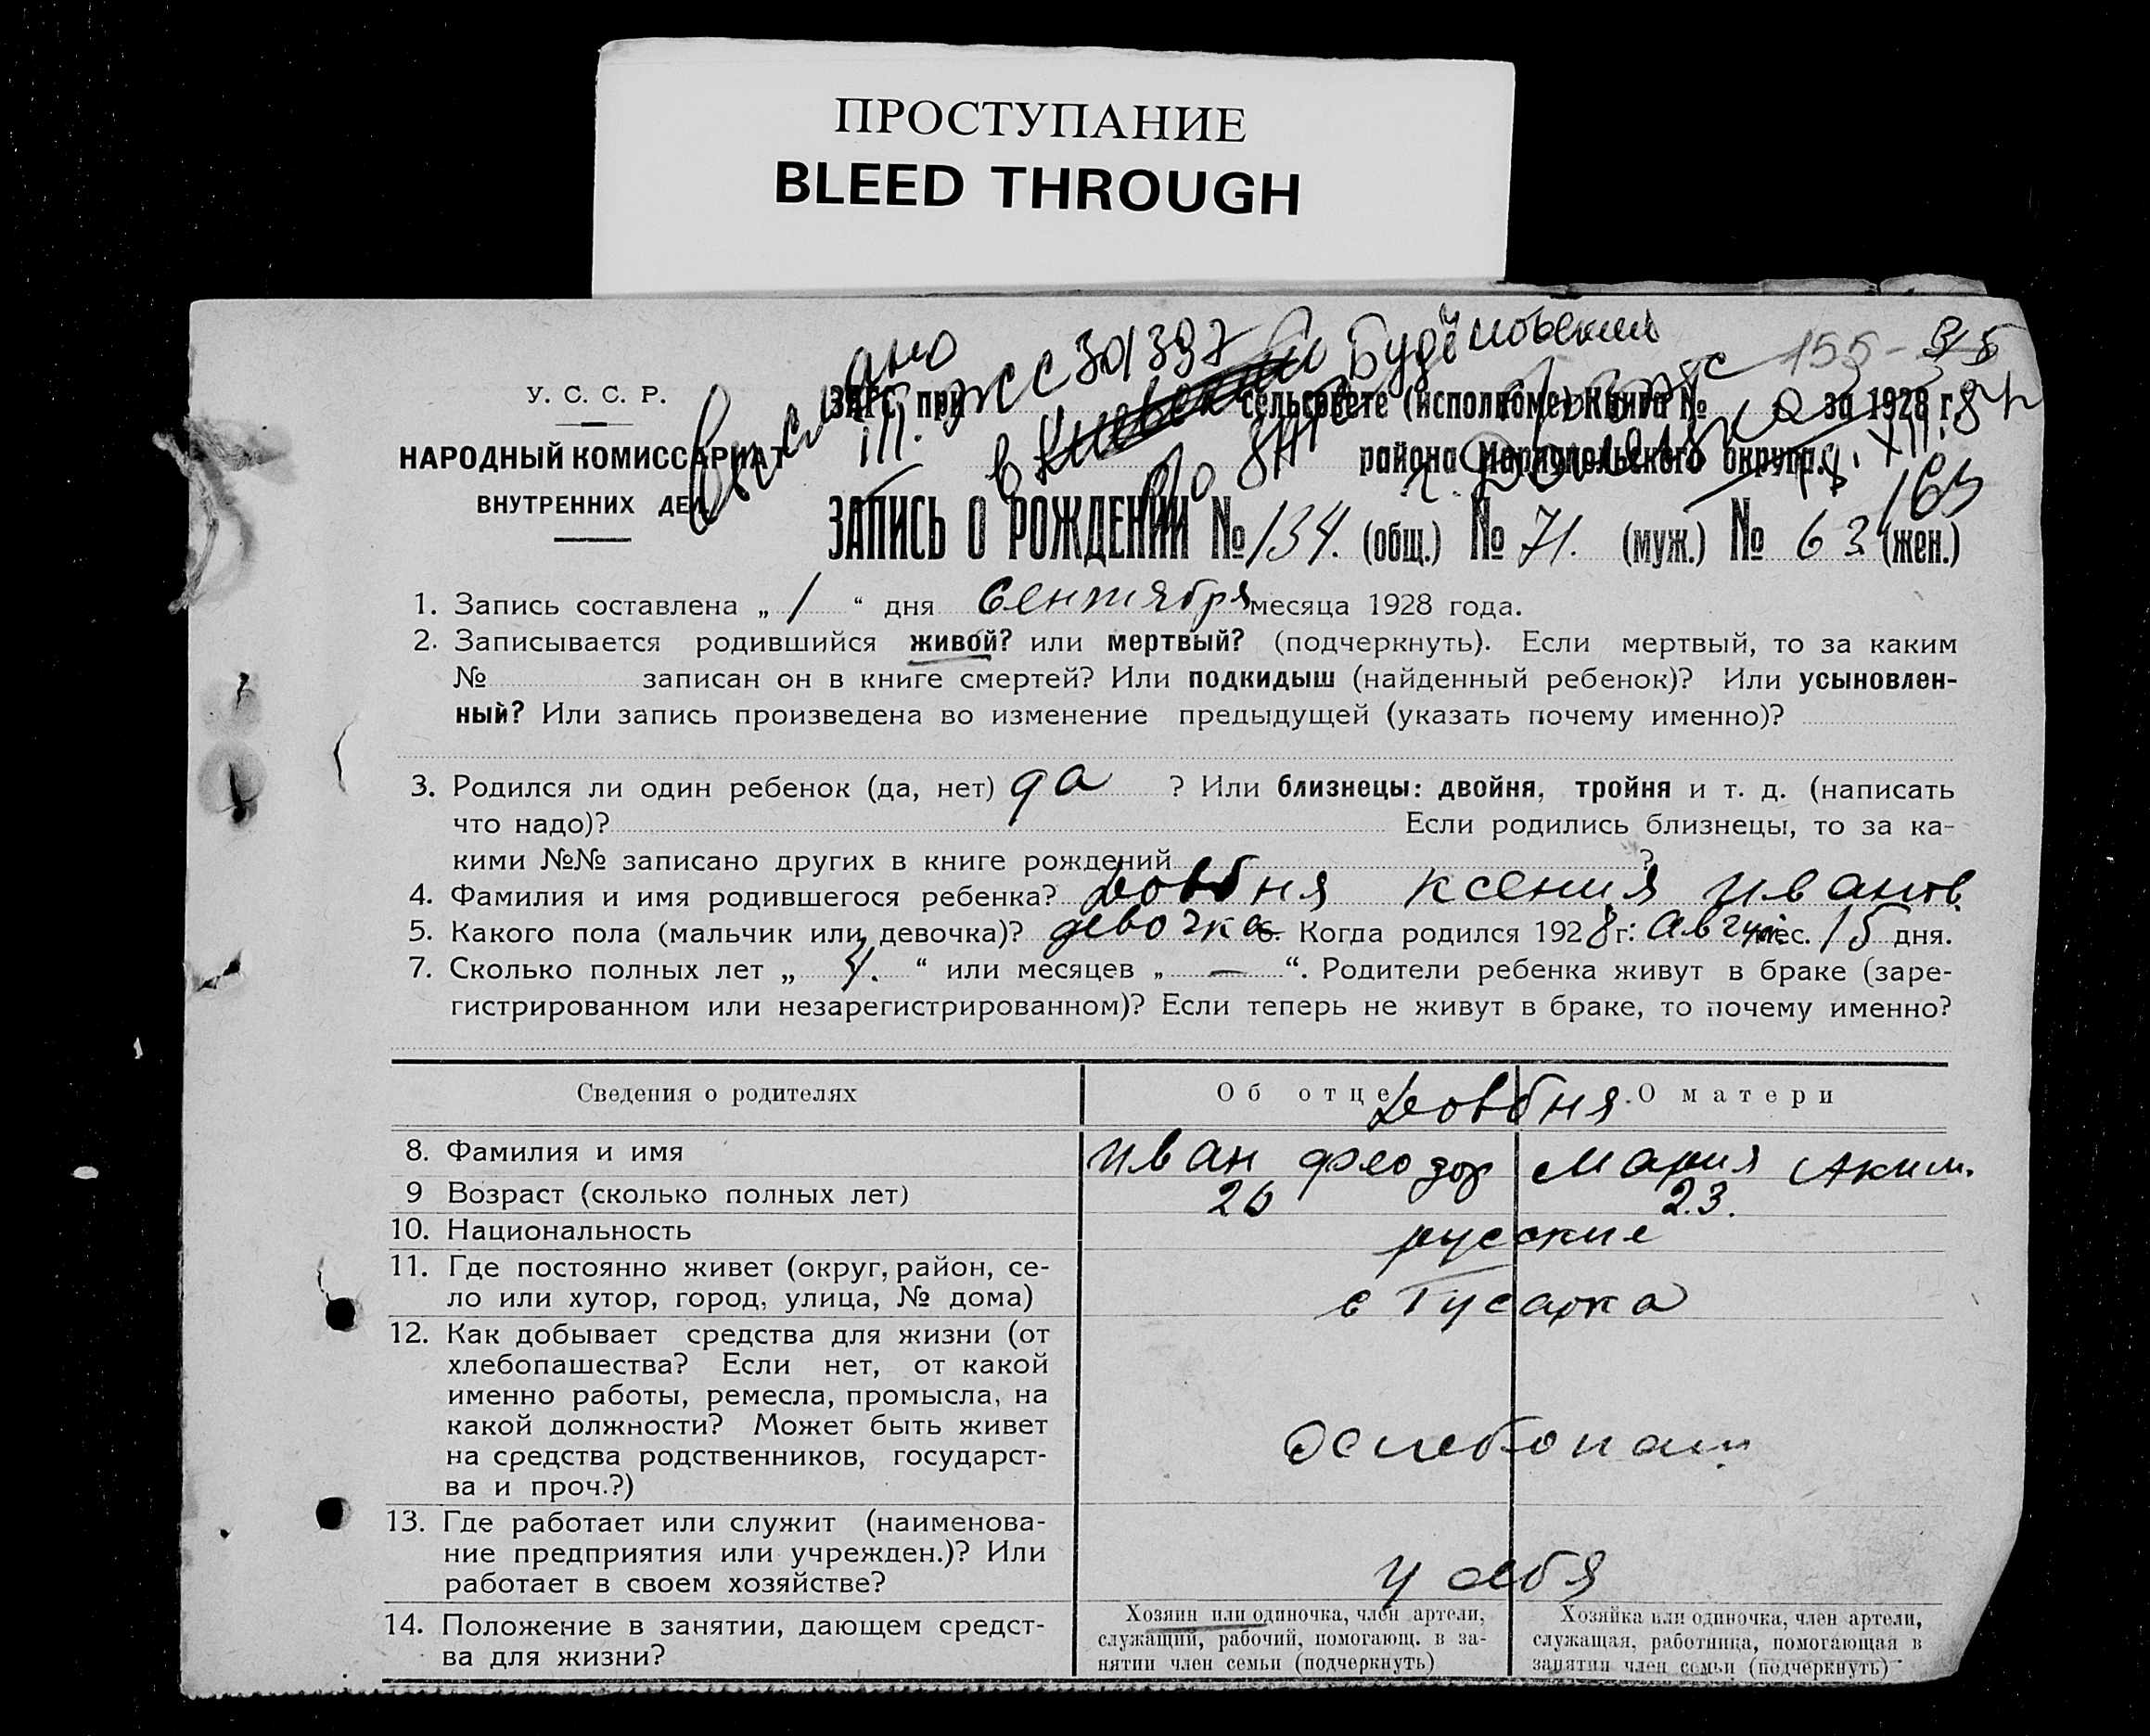 ПРОСТУПАНИЕ
BLEED THROUGH
У. С. С. Р.
НАРОДНЫЙ КОМИССАРИАТ
ВНУТРЕННИХ ДЕЛ
Выслано
301397
155
ЗАГС при сельсовете (исполкоме) Книга № за 1928 г.
района Мариопольского округа.
163
ЗАПИСЬ О РОЖДЕНИИ № 134. (общ.) № 71. (муж.) № 63 (жен.)
1. Запись составлена „ 1 “ дня Сентября месяца 1928 года.
2. Записывается родившийся живой? или мертвый? (подчеркнуть). Если мертвый, то за каким
№ записан он в книге смертей? Или подкидыш (найденный ребенок)? Или усыновлен-
ный? Или запись произведена во изменение предыдущей (указать почему именно)?
3. Родился ли один ребенок (да, нет) да ? Или близнецы: двойня, тройня и т. д. (написать
что надо)? Если родились близнецы, то за ка-
кими №№ записано других в книге рождений ?
4. Фамилия и имя родившегося ребенка? Довбня Ксения Иванов.
5. Какого пола (мальчик или девочка)? девочка 6. Когда родился 1928 г. Август мес. 15 дня.
7. Сколько полных лет „ “ или месяцев „ — “. Родители ребенка живут в браке (заре-
гистрированном или незарегистрированном)? Если теперь не живут в браке, то почему именно?
Сведения о родителях Об отце О матери
Довбня.
8. Фамилия и имя Иван Феодор Мария Аким.
9 Возраст (сколько полных лет) 26 23.
10. Национальность русские
11. Где постоянно живет (округ, район, се-
ло или хутор, город, улица, № дома) с Гусарка
12. Как добывает средства для жизни (от
хлебопашества? Если нет, от какой
именно работы, ремесла, промысла, на
какой должности? Может быть живет
на средства родственников, государст-
ва и проч.?) Хлебопаш.
13. Где работает или служит (наименова-
ние предприятия или учрежден.)? Или
работает в своем хозяйстве? У себя
14. Положение в занятии, дающем средст-
ва для жизни?
Хозяин или одиночка, член артели,
служащий, рабочий, помогающ. в за-
нятии член семьи (подчеркнуть)
Хозяйка или одиночка, член артели,
служащая, работница, помогающая в
занятии член семьи (подчеркнуть)